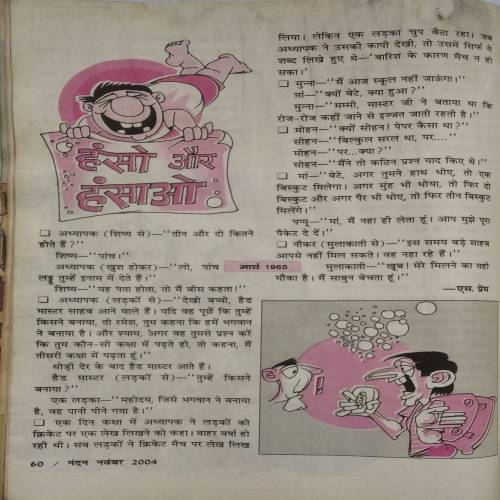 हंसो और
हंसाओ
❑ अध्यापक (शिष्य से)—“तीन और दो कितने
होते हैं?”
शिष्य—“पांच।”
अध्यापक (खुश होकर)—“लो, पांच
लड्डू तुम्हें इनाम में देते हैं।”
शिष्य—“यह पता होता, तो मैं बीस कहता।”
❑ अध्यापक (लड़कों से)—“देखो बच्चो, हैड
मास्टर साहब आने वाले हैं। यदि वह पूछें कि तुम्हें
किसने बनाया, तो रमेश, तुम कहना कि हमें भगवान
ने बनाया है। और श्याम, अगर वह तुमसे प्रश्न करें
कि तुम कौन-सी कक्षा में पढ़ते हो, तो कहना, मैं
तीसरी कक्षा में पढ़ता हूं।”
थोड़ी देर के बाद हैड मास्टर आते हैं।
हैड मास्टर (लड़कों से)—“तुम्हें किसने
बनाया?”
एक लड़का—“महोदय, जिसे भगवान ने बनाया
है, वह पानी पीने गया है।”
❑ एक दिन कक्षा में अध्यापक ने लड़कों को
क्रिकेट पर एक लेख लिखने को कहा। बाहर वर्षा हो
रही थी। सब लड़कों ने क्रिकेट मैच पर लेख लिख
60 / नंदन नवंबर 2004
मार्च 1965
लिया। लेकिन एक लड़का चुप बैठा रहा। जब
अध्यापक ने उसकी कापी देखी, तो उसमें सिर्फ ये
शब्द लिखे हुए थे—‘बारिश के कारण मैच न हो
सका।’
❑ मुन्ना—“मैं आज स्कूल नहीं जाऊंगा।”
मां—“क्यों बेटे, क्या हुआ?”
मुन्ना—“मम्मी, मास्टर जी ने बताया था कि
रोज-रोज कहीं जाने से इज्जत जाती रहती है।”
❑ मोहन—“क्यों सोहन! पेपर कैसा था?”
सोहन—“बिल्कुल सरल था, पर....”
मोहन—“पर...क्या?”
सोहन—“मैंने तो कठिन प्रश्न याद किए थे।”
❑ मां—“बेटे, अगर तुमने हाथ धोए, तो एक
बिस्कुट मिलेगा। अगर मुंह भी धोया, तो फिर दो
बिस्कुट और अगर पैर भी धोए, तो फिर तीन बिस्कुट
मिलेंगे।”
पप्पू—“मां, मैं नहा ही लेता हूं। आप मुझे पूरा
पैकेट दे दें।”
❑ नौकर (मुलाकाती से)—“इस समय बड़े साहब
आपसे नहीं मिल सकते। वह नहा रहे हैं।”
मुलाकाती—“खूब! मेरे मिलने का यही
मौका है। मैं साबुन बेचता हूं।”
—एस. प्रेम